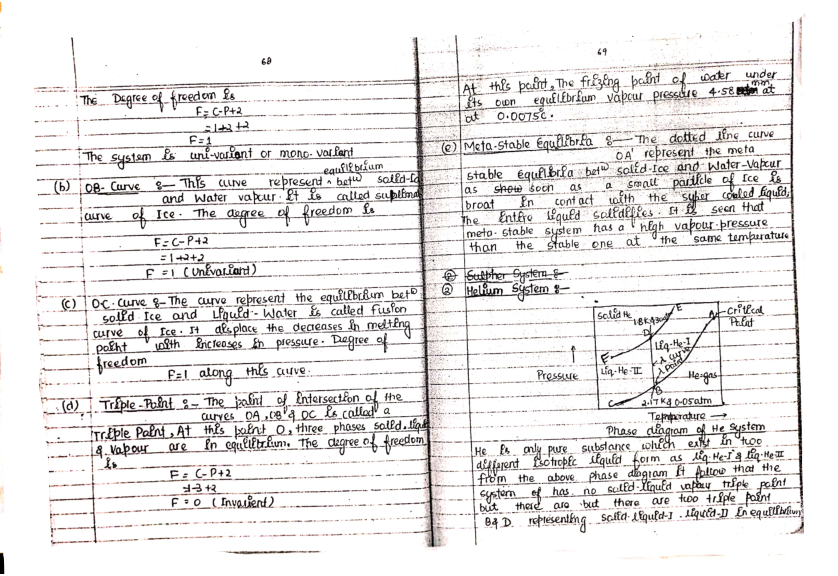 68
The Degree of freedom is
F = C-P+2
= 1-2+2
F = 1
The system is uni-variant or mono-variant
equilibrium
(b) OB-Curve :- This curve represent ^ betⁿ solid-Ice
and water vapour. It is called
curve of Ice. The degree of freedom is
F = C-P+2
= 1-2+2
F = 1 (Univariant)
(c) OC. Curve :- The curve represent the equilibrium betⁿ
solid Ice and Liquid-Water is called Fusion
curve of Ice. It displace the decreases in melting
point with increases in pressure. Degree of
freedom
F=1 along this curve.
(d) Triple-Point :- The point of intersection of the
curves OA, OB & OC is called a
Triple Point, At this point O, three phases solid, liquid
& vapour are in equilibrium. The degree of freedom
is
F = C-P+2
=1-3+2
F = 0 (Invarient)
69
At this point, The frizing point of water under
its own equilibrium vapour pressure 4.58 mm at
at 0.0075°c.
(e) Meta-Stable Equilibria :- The dotted line curve
OA' represent the meta
stable equilibria betⁿ solid-Ice and Water-Vapur
as show soon as a small particle of Ice is
broat in contact with the super cooled liquid,
The Entire liquid solidifies. It is seen that
meta-stable system has a high vapour-pressure
than the stable one at the same temperature
② Sulpher System :-
② Helium System :-
Solid He
E
1.8K &
D
A
Critical
Point
Liq-He-I
λ curve
λ Point
F
Liq-He-II
He-gas
B
C
2.17 K & 0.05 atm
↑
Pressure
Temperature →
Phase diagram of He System
He is only pure substance which exist in two
different isotropic liquid form as liq-He-I & liq-He-II
from the above phase diagram it follow that the
system of has no solid-liquid vapour triple point
but there are but there are two triple point
B & D. representing solid-liquid-I . liquid-II in equilibrium